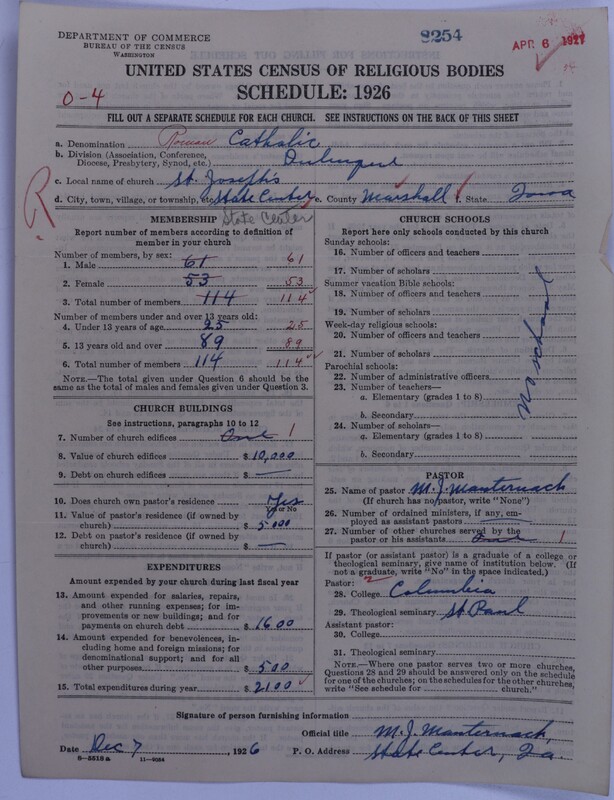 DEPARTMENT OF COMMERCE
BUREAU OF THE CENSUS
WASHINGTON
8254
APR 6 1927
UNITED STATES CENSUS OF RELIGIOUS BODIES
SCHEDULE: 1926
0-4
FILL OUT A SEPARATE SCHEDULE FOR EACH CHURCH. SEE INSTRUCTIONS ON THE BACK OF THIS SHEET
a. Denomination Roman Catholic
b. Division (Association, Conference, Diocese, Presbytery, Synod, etc.)
c. Local name of church St. Joseph's
R
d. City, town, village, or township, etc. State Center e. County Marshall f. State Iowa
State Center
MEMBERSHIP
Report number of members according to definition of member in your church
Number of members, by sex:
1. Male 61 61
2. Female 53 53
3. Total number of members 114 114
Number of members under and over 13 years old:
4. Under 13 years of age 25 25
5. 13 years old and over 89 89
6. Total number of members 114 114
NOTE.—The total given under Question 6 should be the same as the total of males and females given under Question 3.
CHURCH BUILDINGS
See instructions, paragraphs 10 to 12
7. Number of church edifices One 1
8. Value of church edifices $ 10,000
9. Debt on church edifices $ —
10. Does church own pastor's residence Yes
Yes or No
11. Value of pastor's residence (if owned by church) $ 5000
12. Debt on pastor's residence (if owned by church) $ —
EXPENDITURES
Amount expended by your church during last fiscal year
13. Amount expended for salaries, repairs, and other running expenses; for improvements or new buildings; and for payments on church debt $ 1600
14. Amount expended for benevolences, including home and foreign missions; for denominational support; and for all other purposes $ 500
15. Total expenditures during year $ 2100
CHURCH SCHOOLS
Report here only schools conducted by this church
Sunday schools:
16. Number of officers and teachers
17. Number of scholars
Summer vacation Bible schools:
18. Number of officers and teachers
19. Number of scholars
Week-day religious schools:
20. Number of officers and teachers
21. Number of scholars
Parochial schools:
22. Number of administrative officers
23. Number of teachers—
a. Elementary (grades 1 to 8)
b. Secondary
24. Number of scholars—
a. Elementary (grades 1 to 8)
b. Secondary
No school
PASTOR
25. Name of pastor M. J. Manternach
(If church has no pastor, write "None")
26. Number of ordained ministers, if any, employed as assistant pastors —
27. Number of other churches served by the pastor or his assistants One 1
If pastor (or assistant pastor) is a graduate of a college or theological seminary, give name of institution below. (If not a graduate, write "No" in the space indicated.)
Pastor: 2
28. College Columbia
29. Theological seminary St. Paul
Assistant pastor:
30. College
31. Theological seminary
NOTE.—Where one pastor serves two or more churches, Questions 28 and 29 should be answered only on the schedule for one of the churches; on the schedules for the other churches, write "See schedule for church."
Signature of person furnishing information
Official title M. J. Manternach,
Date Dec 7, 1926 P. O. Address State Center, Ia.
8-5518a 11-9284